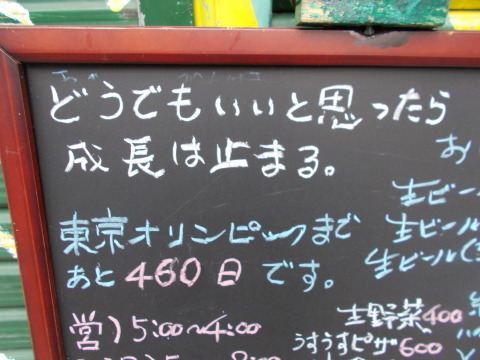 どうでもいいと思ったら
成長は止まる。
東京オリンピックまで
あと460日です。
営)5:00〜4:00
生ビール
生ビール
生ビール
生野菜400
うすうすピザ600